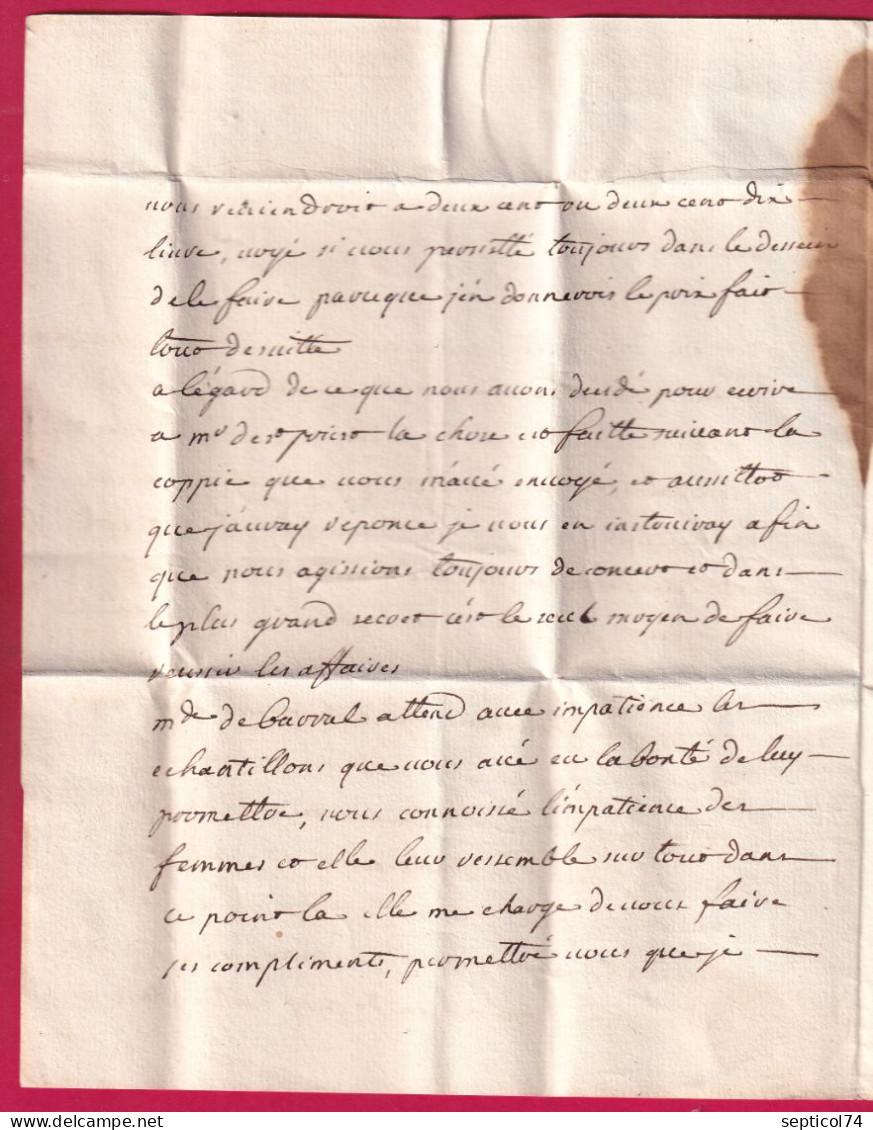 vous reviendroit a deux cent ou deux cent dix
livre, voyé si vous persisté toujours dans le dessein
de le faire parceque j'en donnerois le prix fait
tout desuitte
a légard de ce que nous avons decidé pour ecrire
a mr de st priest la chose est faitte suivant la
coppie que vous m'avé envoyé, et aussitot
que j'auray reponce je vous en instruiray afin
que nous agissions toujours de concert et dans
le plus grand secret c'est le seul moyen de faire
reussir les affaires
mde de barral attend avec impatience les
echantillons que vous avé eu la bonté de luy
promettre, vous connoissé l'impatience des
femmes et elle leur ressemble sur tout dans
ce point la elle me charge de vous faire
ses compliments, permettré vous que je
septicol74